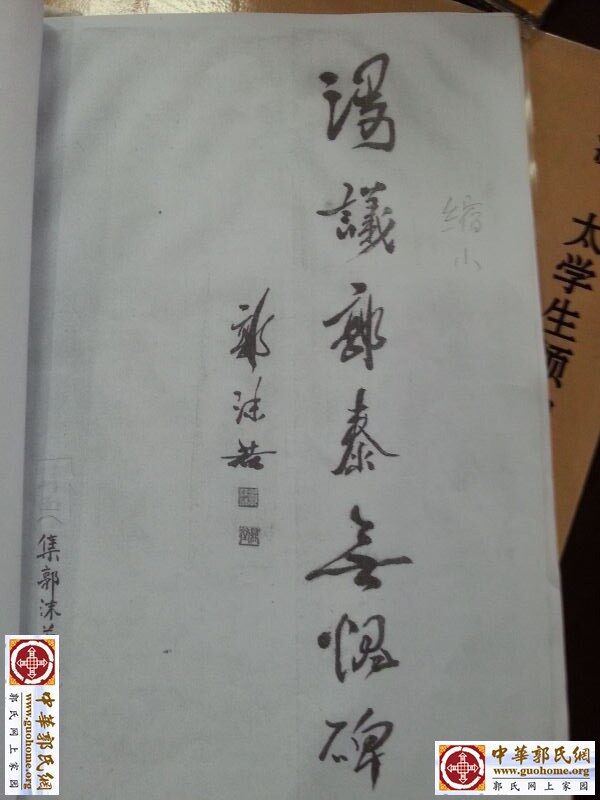 漫議郭泰無愧碑
郭沫若
缩小
太学生
集郭沫
中華郭氏網
www.guohome.org
郭氏网上家园
中華郭氏網
www.guohome.org
郭氏网上家园